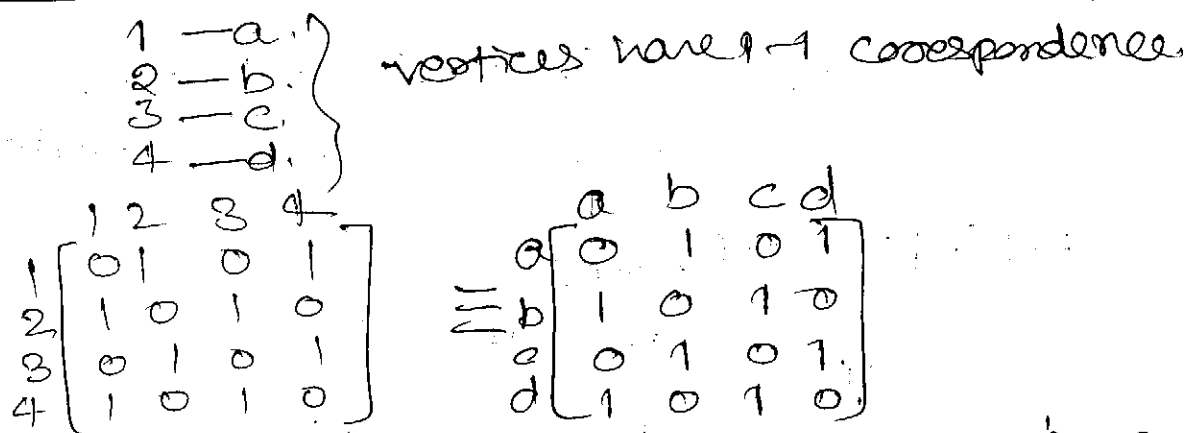 1 — a.
2 — b.
3 — c.
4 — d.
vertices have 1-1 correspondence.
1 2 3 4
1 0 1 0 1
2 1 0 1 0
3 0 1 0 1
4 1 0 1 0
≡
a b c d
a 0 1 0 1
b 1 0 1 0
c 0 1 0 1.
d 1 0 1 0